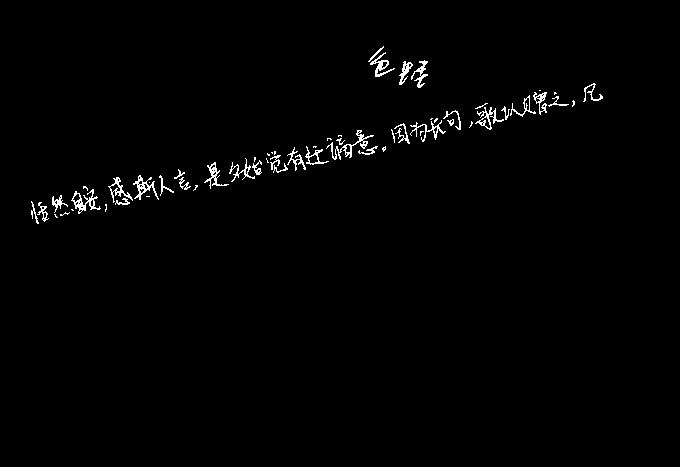 色壁
恬然自安，感斯人言，是夕始觉有迁谪意。因为长句，歌以赠之，凡